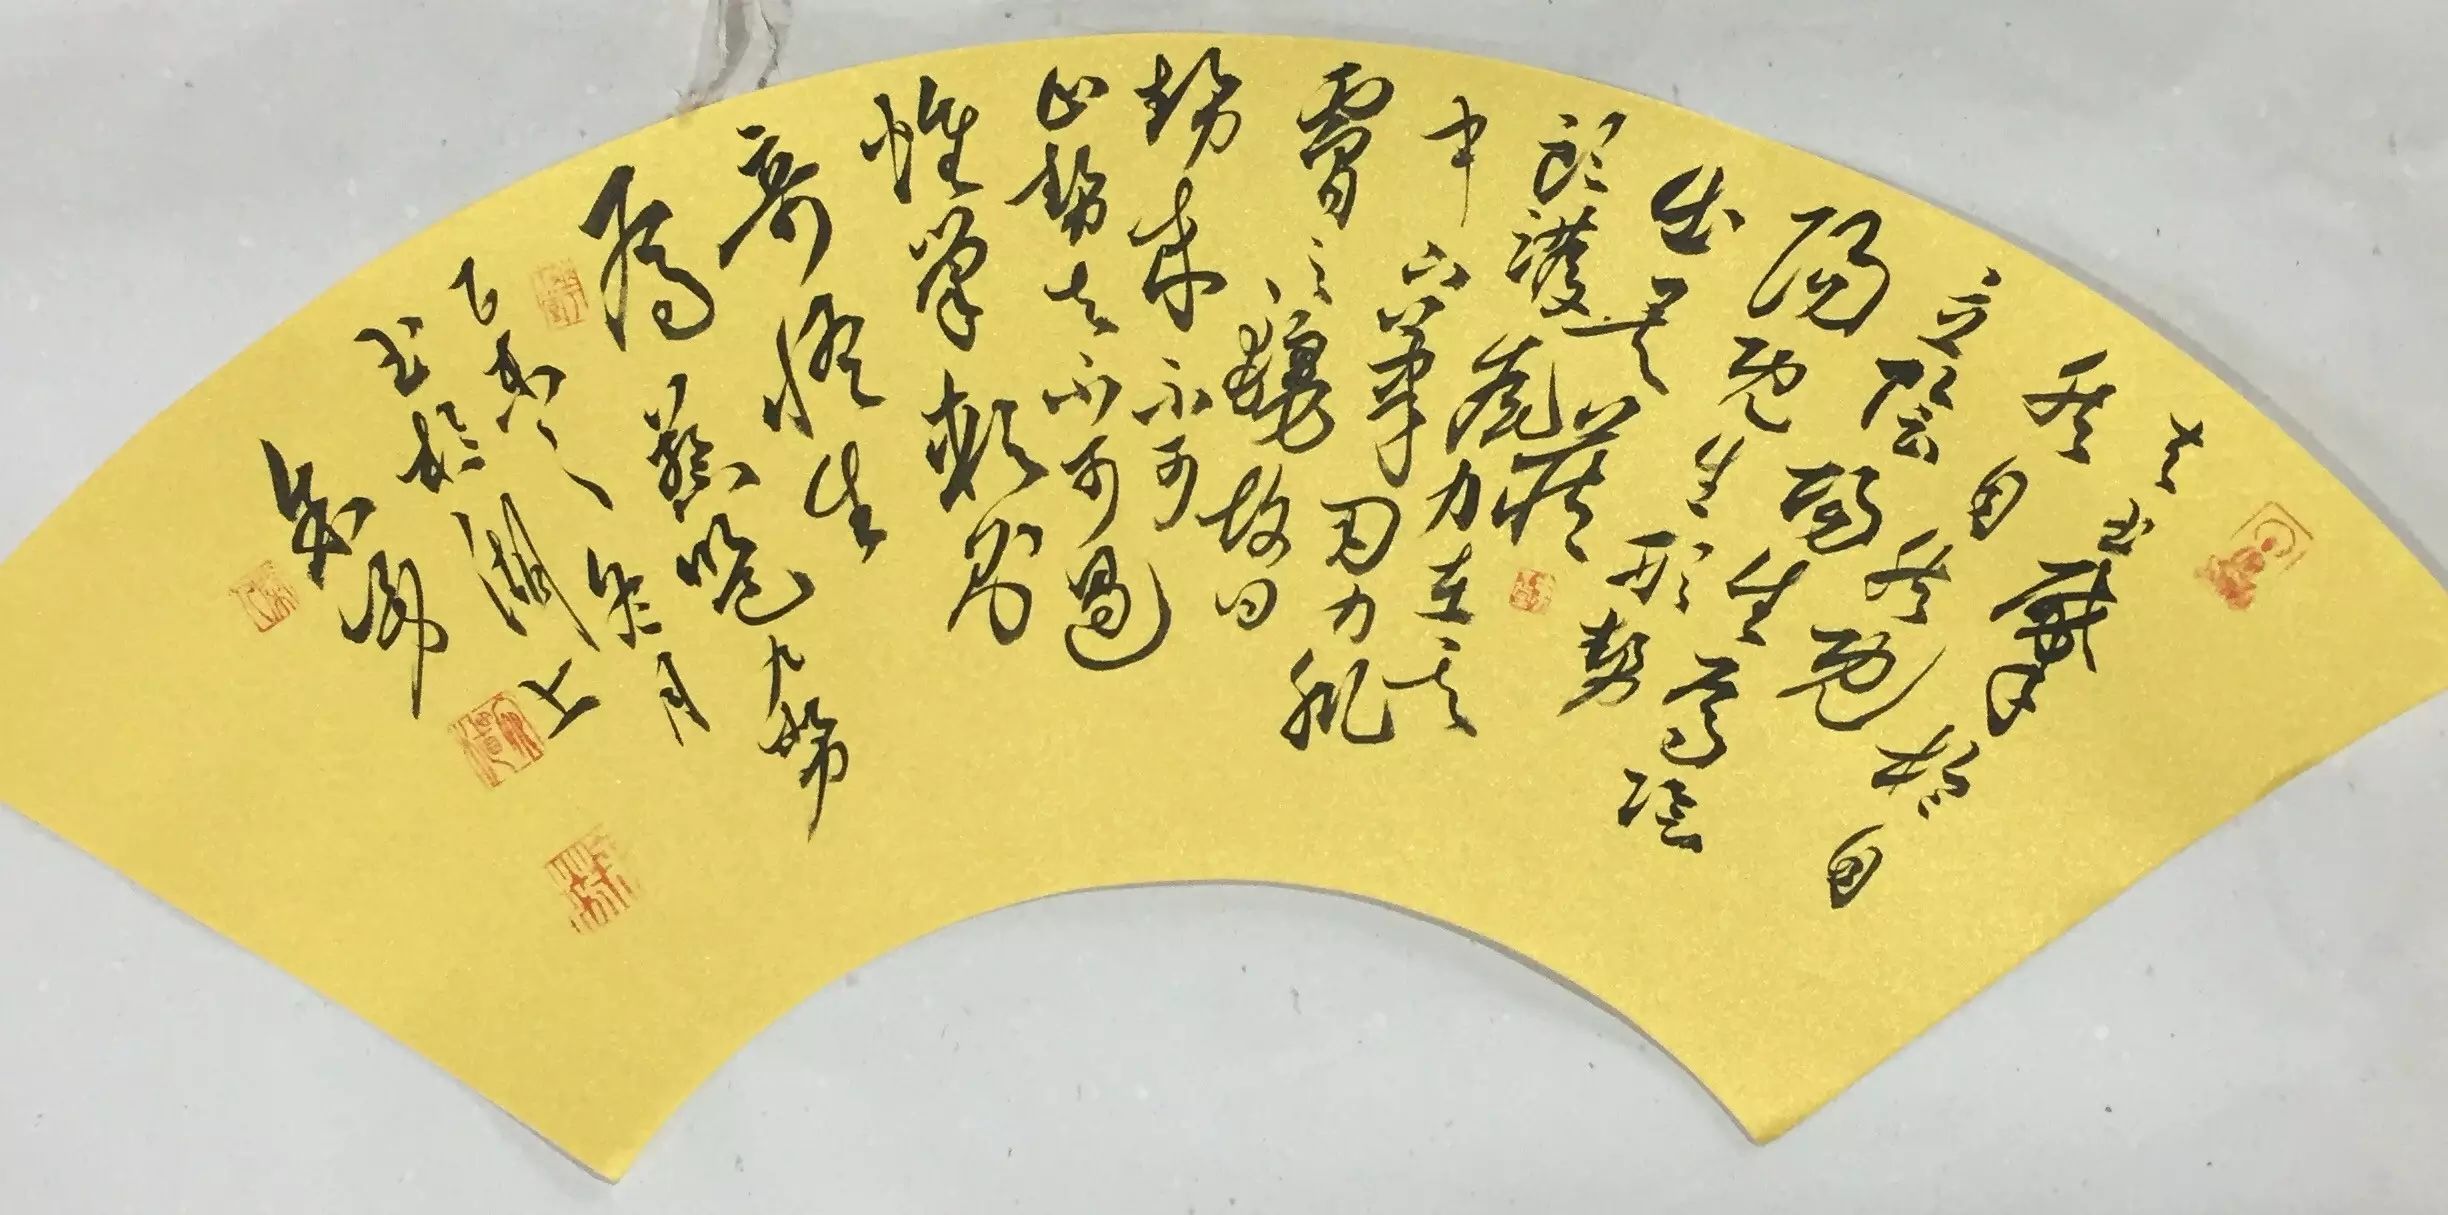 夫书肇於自
然自然既
立陰陽生焉陰
陽既生形势
出矣藏
头護尾力在字
中下筆用力肌
膚之麗故曰
势来不可
止势去不可遏
惟筆軟则
奇怪生
焉 蔡邕九势
乙未之月
书於湖上